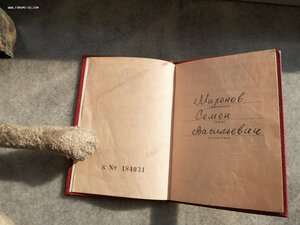 www.forums-su.com
Миронов
(фамилия)
Семен
(имя)
Васильевич
(отчество)
К № 184031